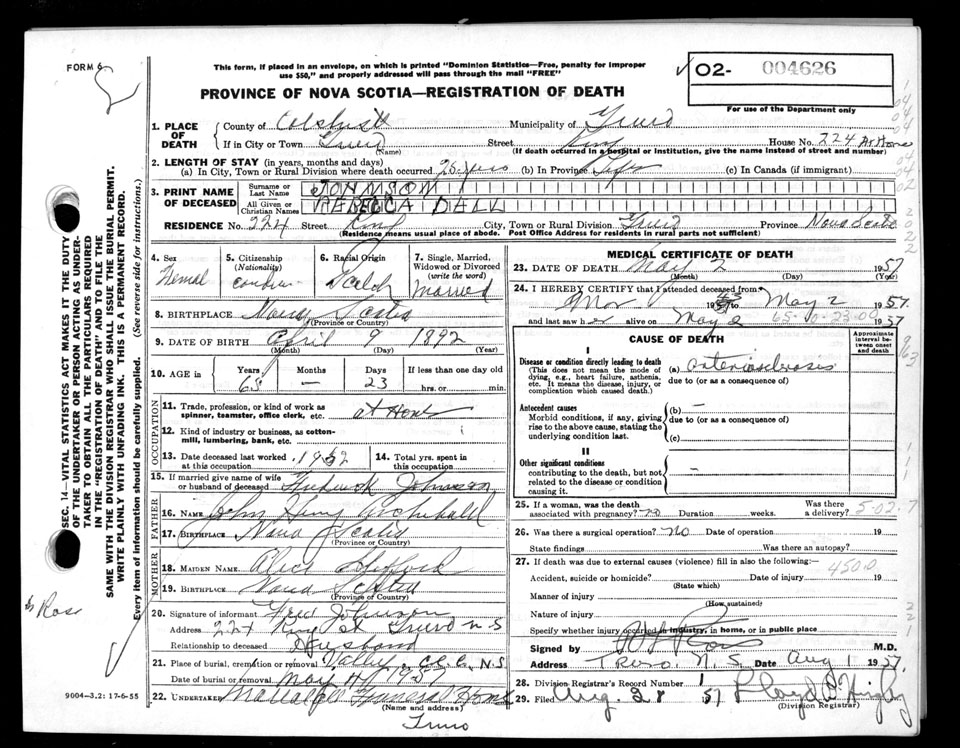 FORM 6
This form, if placed in an envelope, on which is printed "Dominion Statistics—Free, penalty for improper
use $50," and properly addressed will pass through the mail "FREE"
PROVINCE OF NOVA SCOTIA—REGISTRATION OF DEATH
02- 004626
For use of the Department only
SEC. 14—VITAL STATISTICS ACT MAKES IT THE DUTY
OF THE UNDERTAKER OR PERSON ACTING AS UNDER-
TAKER TO OBTAIN ALL THE PARTICULARS REQUIRED
IN THE "REGISTRATION OF DEATH" AND TO FILE THE
SAME WITH THE DIVISION REGISTRAR WHO SHALL ISSUE THE BURIAL PERMIT.
WRITE PLAINLY WITH UNFADING INK. THIS IS A PERMANENT RECORD.
Every item of information should be carefully supplied. (See reverse side for instructions.)
1. PLACE OF DEATH County of Colchester Municipality of Truro
If in City or Town Truro Street King House No. 224 At Home
(Name) (If death occurred in a hospital or institution, give the name instead of street and number)
2. LENGTH OF STAY (in years, months and days)
(a) In City, Town or Rural Division where death occurred 25 yrs (b) In Province Life (c) In Canada (if immigrant)
3. PRINT NAME OF DECEASED Surname or Last Name JOHNSON
All Given or Christian Names REBECCA DALL
RESIDENCE No. 224 Street King City, Town or Rural Division Truro Province Nova Scotia
(Residence means usual place of abode. Post Office Address for residents in rural parts not sufficient)
4. Sex Femal
5. Citizenship (Nationality)
6. Racial Origin
7. Single, Married, Widowed or Divorced (write the word) Married
8. BIRTHPLACE Nova Scotia
(Province or Country)
9. DATE OF BIRTH April 9 1892
(Month) (Day) (Year)
10. AGE in Years 65 Months — Days 23 If less than one day old
hrs. or min.
OCCUPATION
11. Trade, profession, or kind of work as spinner, teamster, office clerk, etc. at Home
12. Kind of industry or business, as cotton-mill, lumbering, bank, etc.
13. Date deceased last worked at this occupation 1952 14. Total yrs. spent in this occupation
15. If married give name of wife or husband of deceased Frederick Johnson
FATHER
16. NAME John Henry Archibald
17. BIRTHPLACE Nova Scotia
(Province or Country)
MOTHER
18. MAIDEN NAME Alice
19. BIRTHPLACE Nova Scotia
(Province of Country)
20. Signature of informant Fred Johnson
Address 224 King St Truro N.S
Relationship to deceased Husband
21. Place of burial, cremation or removal Valley, Col. Co. N.S.
Date of burial or removal May 4 1957
22. UNDERTAKER Funeral Home
(Name and address)
Truro
9004-3.2: 17-6-55
MEDICAL CERTIFICATE OF DEATH
23. DATE OF DEATH May 2 1957
(Month) (Day)
24. I HEREBY CERTIFY that I attended deceased from
to May 2 1957.
and last saw her alive on May 2 1957
65-0-23-00
CAUSE OF DEATH
Approximate interval between onset and death
I
Disease or condition directly leading to death
(This does not mean the mode of dying, e.g., heart failure, asthenia, etc. It means the disease, injury, or complication which caused death.)
(a) arteriosclerosis
due to (or as a consequence of)
Antecedent causes
Morbid conditions, if any, giving rise to the above cause, stating the underlying condition last.
(b) —
due to (or as a consequence of)
(c)
II
Other significant conditions
contributing to the death, but not related to the disease or condition causing it.
—
25. If a woman, was the death associated with pregnancy? no Duration weeks. Was there a delivery?
5-027
26. Was there a surgical operation? no Date of operation 19
State findings Was there an autopsy?
27. If death was due to external causes (violence) fill in also the following:—
4500
Accident, suicide or homicide? Date of injury 19
(State which)
Manner of injury
(How sustained)
Nature of injury
Specify whether injury occurred in industry, in home, or in public place
Signed by M.D.
Address Truro. N. S. Date Aug 1 1957.
28. Division Registrar's Record Number
29. Filed Aug. 28 57 Lloyd
(Division Registrar)